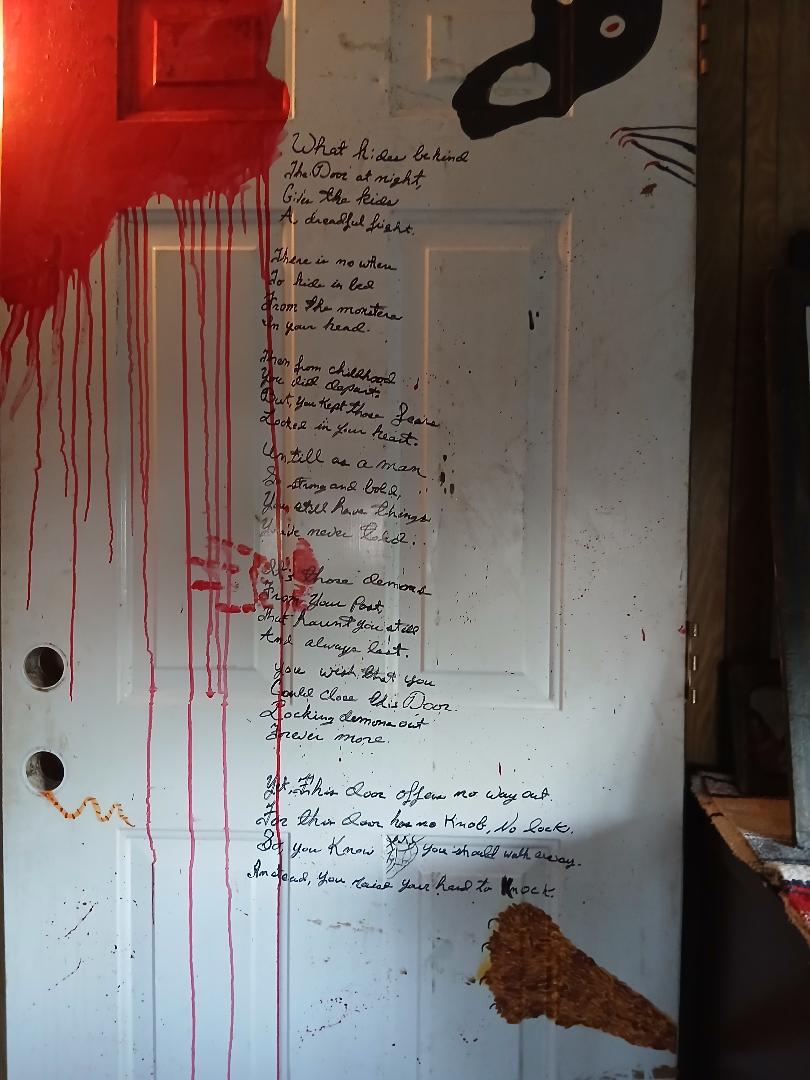 What hides behind
The Door at night,
Gives the kids
A dreadful fright.
There is no where
To hide in bed
From the monsters
In your head.
Then from childhood
You did depart.
But, you kept those fears
Locked in your heart.
Untill as a man
So strong and bold,
You still have things
You've never told.
It's those demons
From Your Past,
that haunt you still
And always last.
you wish that you
Could close this Door.
Locking demons out
Forever more.
Yet, This door offers no way out.
For this door has no Knob, No lock.
So, you Know you should walk away.
Instead, you raise your hand to Knock.